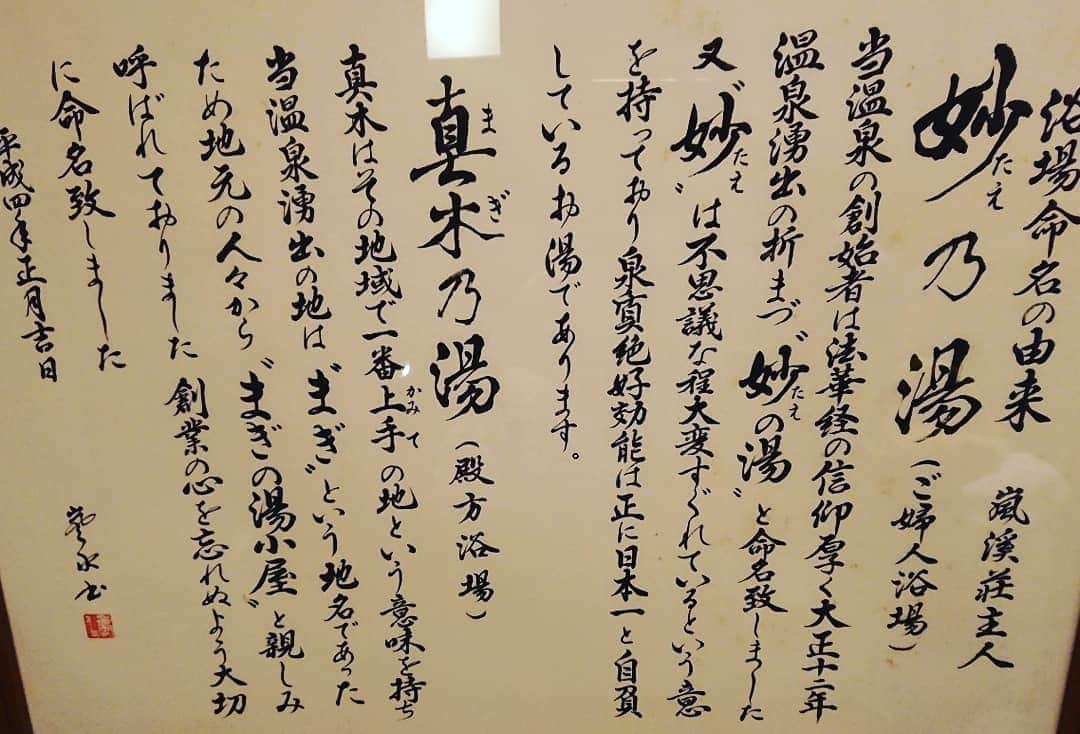 浴場命名の由来
嵐溪荘主人
妙乃湯(ご婦人浴場)
たえ
当温泉の創始者は法華経の信仰厚く大正十二年
温泉湧出の折まづ〝妙の湯〟と命名致しました
たえ
又〝妙〟は不思議な程大変すぐれているという意
たえ
を持っており泉質絶好効能は正に日本一と自負
しているお湯であります。
真木乃湯(殿方浴場)
まぎ
真木はその地域で一番上手の地という意味を持ち
かみて
当温泉湧出の地は〝まぎ〟という地名であった
ため地元の人々から〝まぎの湯小屋〟と親しみ
呼ばれておりました 創業の心を忘れぬよう大切
に命名致しました
平成四年正月吉日
水書